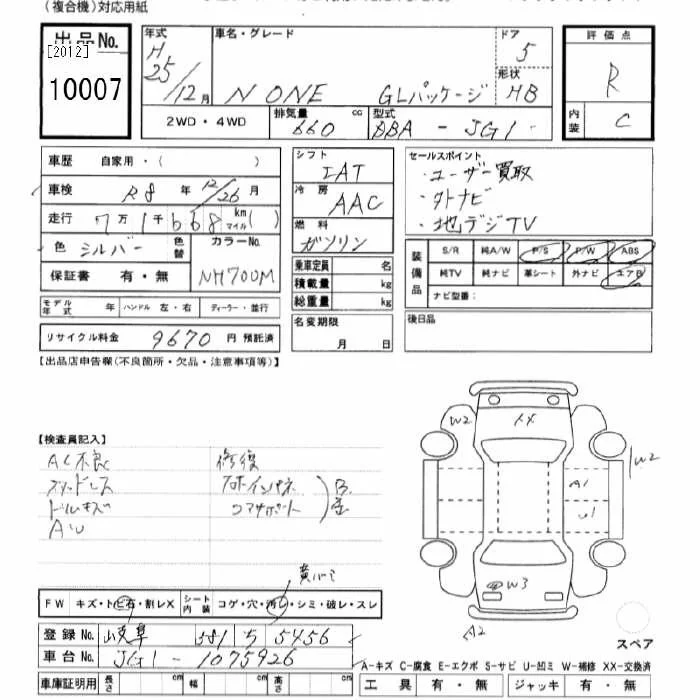 (複合機)対応用紙
出品No.
[2012]
10007
年式 H 25/12月
車名・グレード N ONE GLパッケージ
ドア 5
形状 HB
評価点 R
内装 C
2WD・4WD
排気量 660 cc
型式 DBA - JG1 -
車歴 自家用・( )
車検 R8年 12/26月
走行 7万1千668 km マイル( )
色 シルバー 色替 カラーNo. NH700M
保証書 有・無
モデル年式 年 ハンドル 左・右 ディーラー・並行
リサイクル料金 9670 円 預託済
シフト IAT
冷房 AAC
燃料 ガソリン
乗車定員 名
積載量 kg
総重量 kg
名変期限 月 日
セールスポイント
・ユーザー買取
・外ナビ
・地デジTV
装備品 S/R 純A/W P/S P/W ABS
純TV 純ナビ 革シート 外ナビ エアB
ナビ型番:
後日品
【出品店申告欄(不良箇所・欠品・注意事項等)】
【検査員記入】
AC不良 修復
コアサポート
AW
W2 XX W2
A1
U1
W3
A2
FW キズ・トビ石・割レX シート内装 コゲ・穴・汚レ・シミ・破レ・スレ
登録No. 岐阜 581 ち 5456
車台No. JG1-1075926
スペア
A-キズ C-腐食 E-エクボ S-サビ U-凹ミ W-補修 XX-交換済
車庫証明用 長さ cm 幅 cm 高さ cm
工具 有・無 ジャッキ 有・無